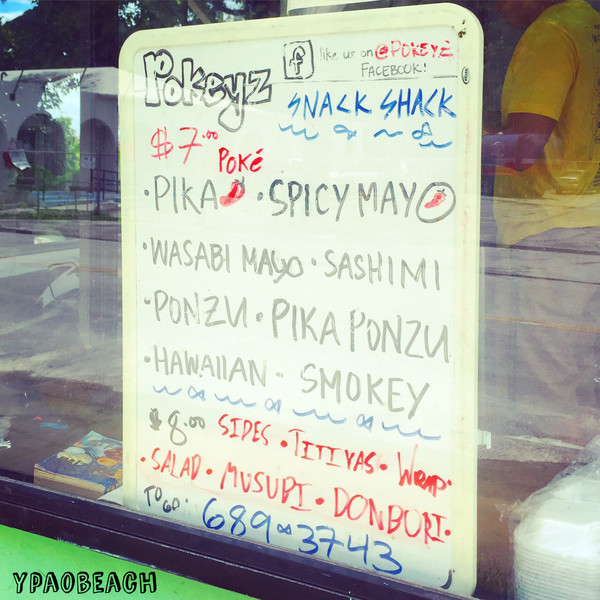 Pokeyz
f like us on @POKEYZ
FACEBOOK!
SNACK SHACK
$7.00
POKé
·PIKA ·SPICY MAYO
·WASABI MAYO ·SASHIMI
·PONZU ·PIKA PONZU
·HAWAIIAN· SMOKEY
$8.00 SIDES ·TITIYAS· Wrap·
·SALAD· MUSUBI · DONBURI·
TO GO: 689∞3743
YPAOBEACH